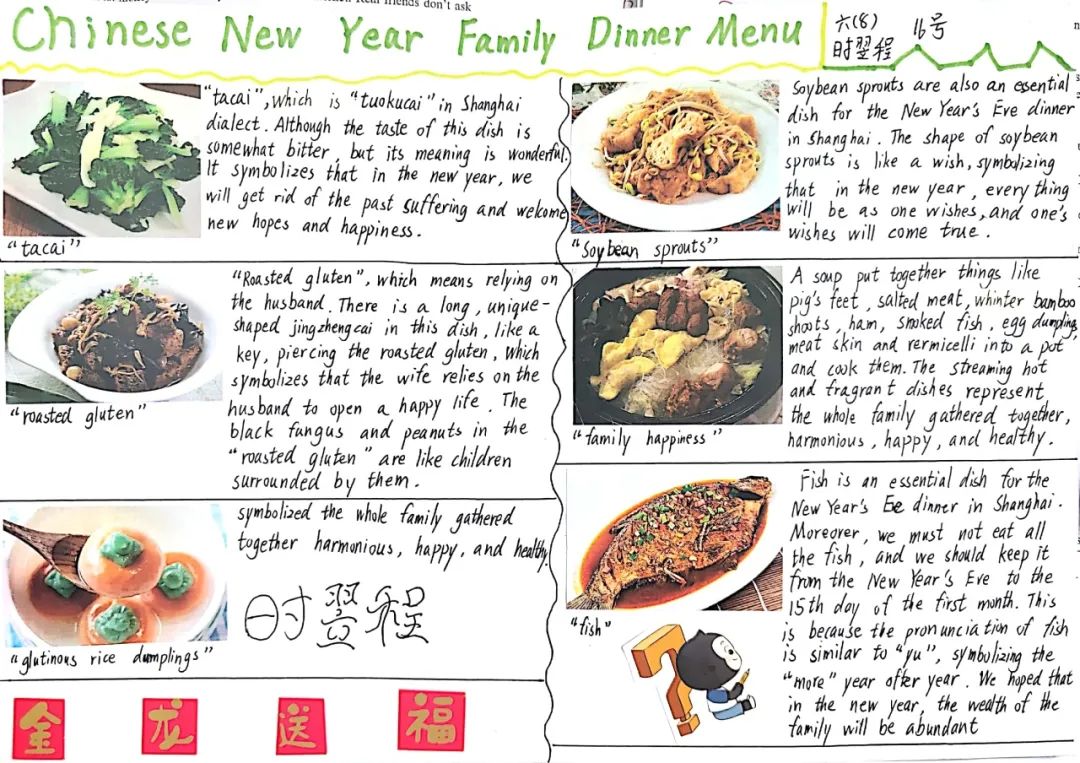 Real friends don't ask
Chinese New Year Family Dinner Menu
六(8) 16号
时翌程
"tacai", which is "tuokucai" in Shanghai
dialect. Although the taste of this dish is
somewhat bitter, but its meaning is wonderful.
It symbolizes that in the new year, we
will get rid of the past suffering and welcome
new hopes and happiness.
"tacai"
"Roasted gluten", which means relying on
the husband. There is a long, unique-
shaped jingzhengcai in this dish, like a
key, piercing the roasted gluten, which
symbolizes that the wife relies on the
husband to open a happy life. The
black fungus and peanuts in the
"roasted gluten" are like children
surrounded by them.
"roasted gluten"
symbolized the whole family gathered
together harmonious, happy, and healthy.
时翌程
"glutinous rice dumplings"
金 龙 送 福
Soybean sprouts are also an essential
dish for the New Year's Eve dinner
in Shanghai. The shape of soybean
sprouts is like a wish, symbolizing
that in the new year, every thing
will be as one wishes, and one's
wishes will come true.
"Soybean sprouts"
A soup put together things like
pig's feet, salted meat, whinter bamboo
shoots, ham, smoked fish, egg dumpling,
meat skin and rermicelli into a pot
and cook them. The streaming hot
and fragrant dishes represent
the whole family gathered together,
harmonious, happy, and healthy.
"family happiness"
Fish is an essential dish for the
New Year's Eve dinner in Shanghai.
Moreorer, we must not eat all
the fish, and we should keep it
from the New Year's Eve to the
15th day of the first month. This
is because the pronunciation of fish
is similar to "yu", symbolizing the
"more" year ofter year. We hoped that
in the new year, the wealth of the
family will be abundant
"fish"